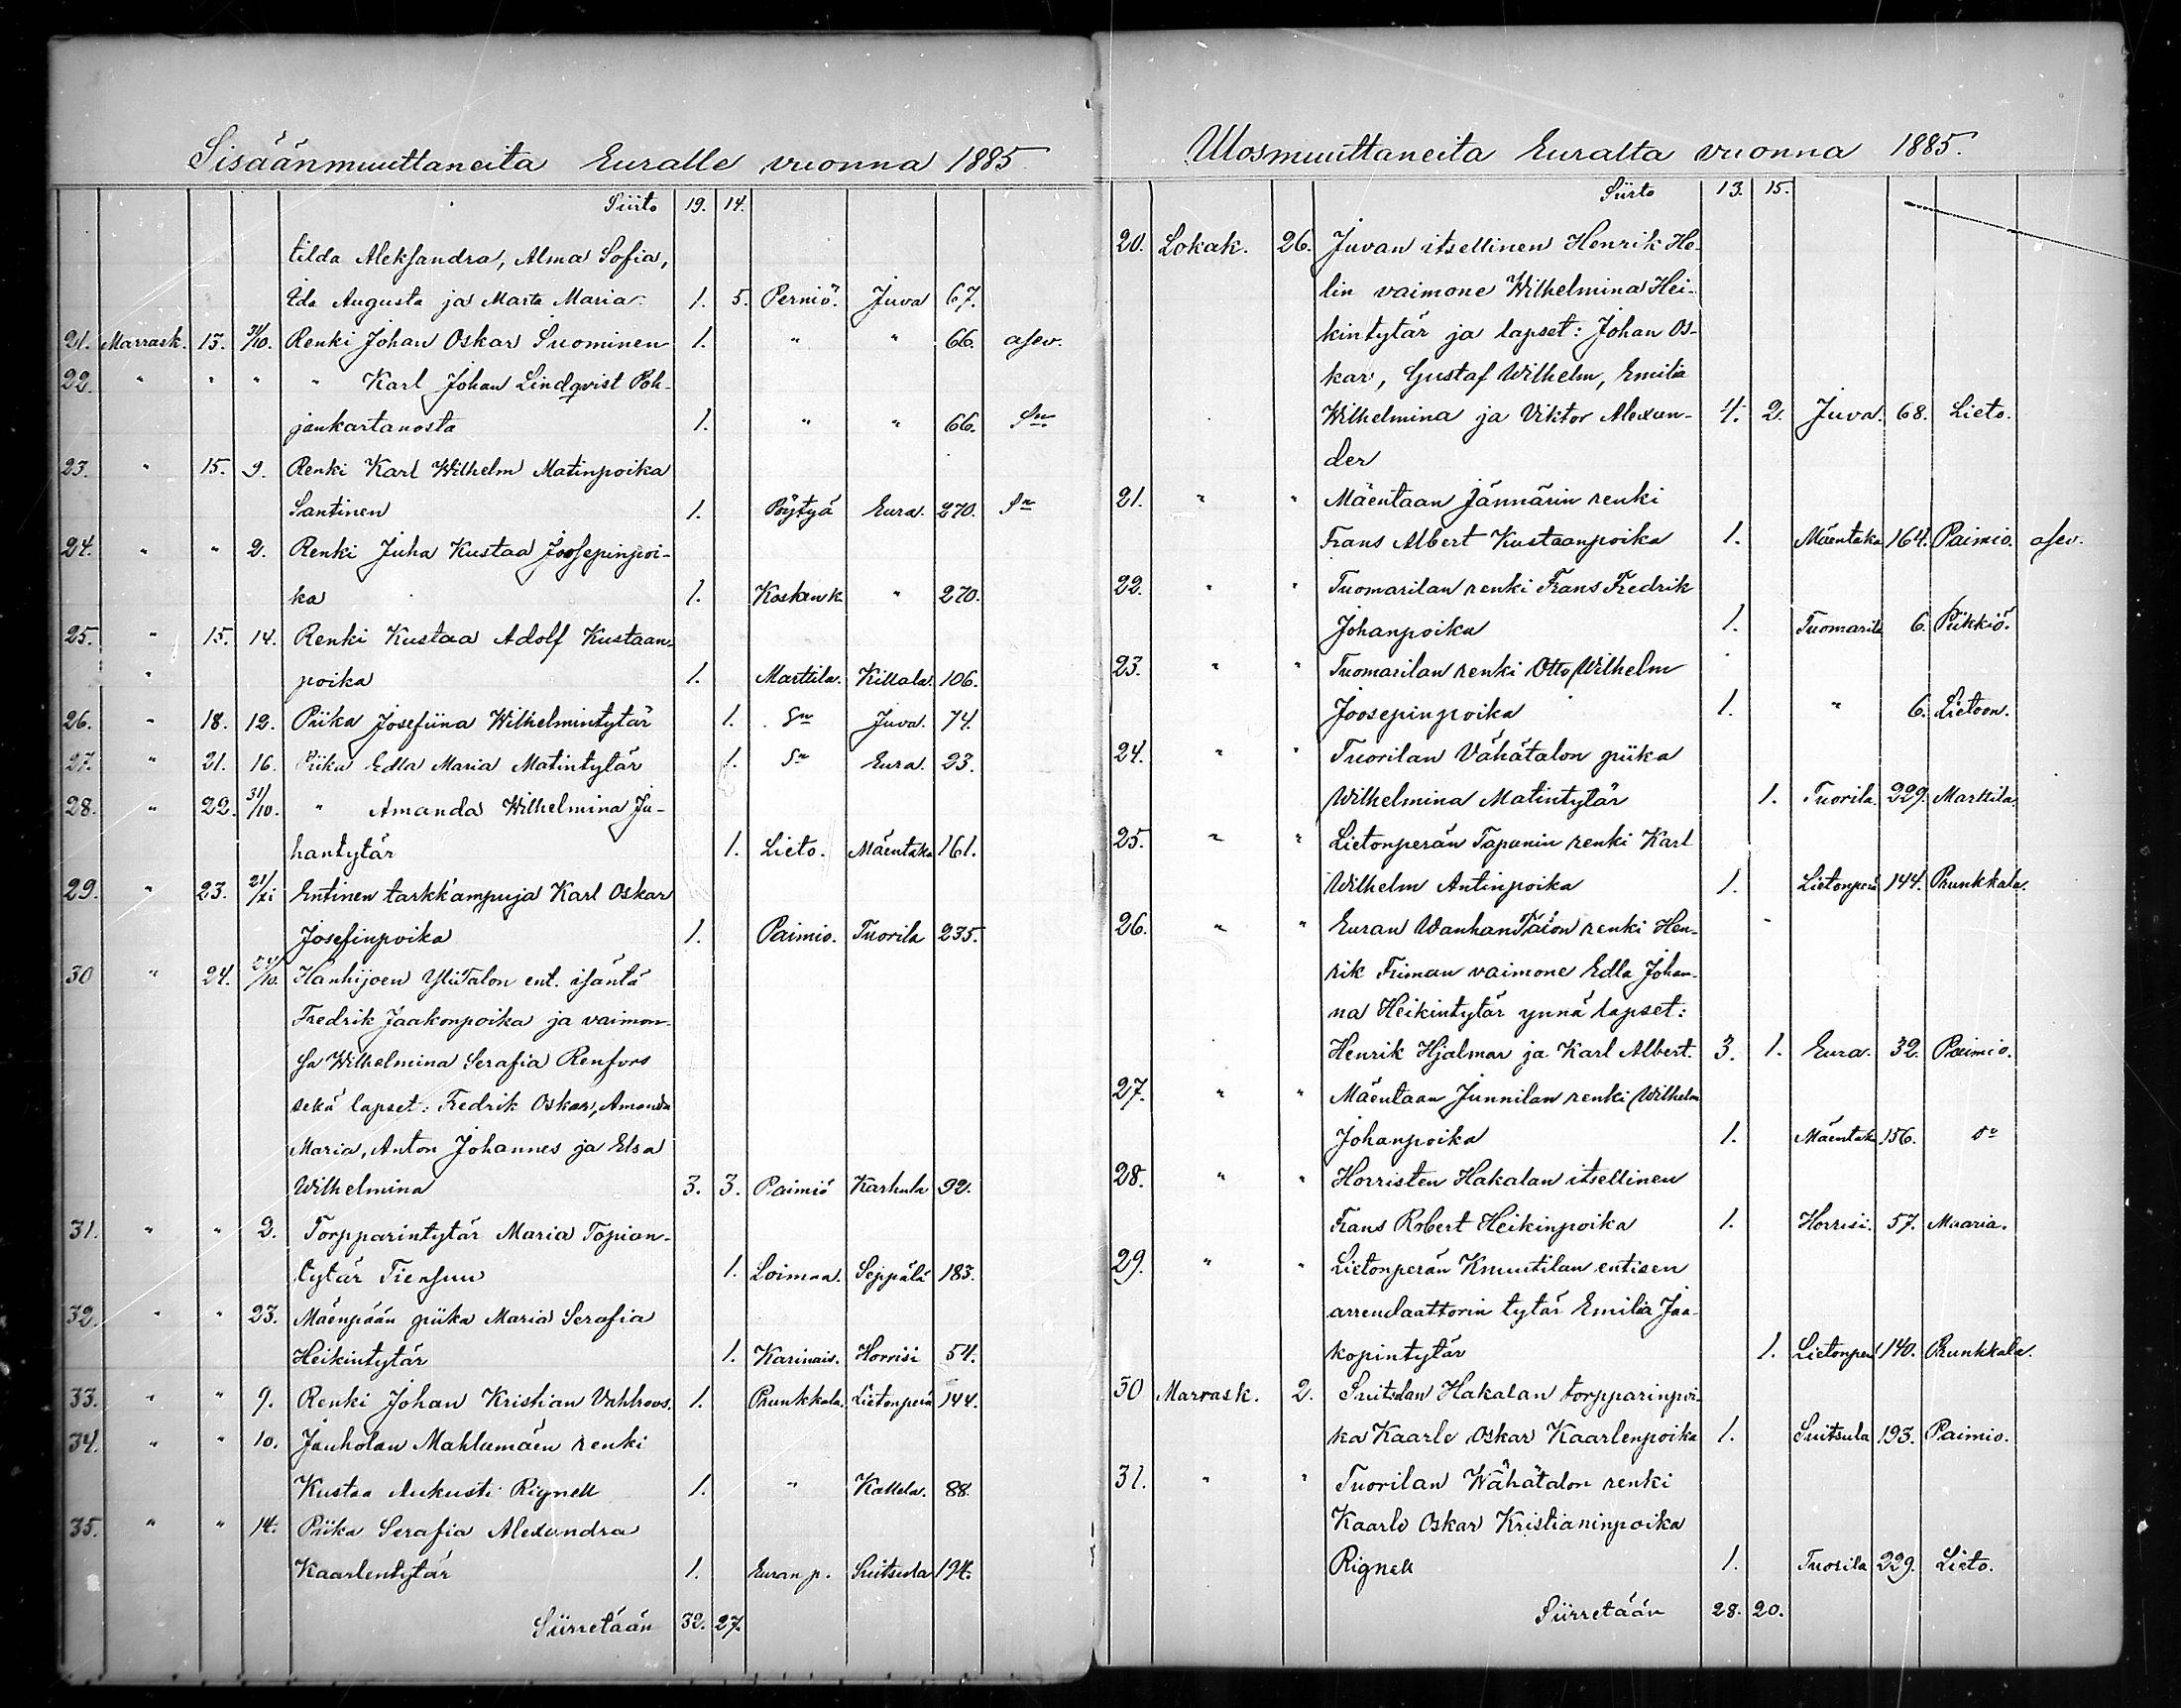 Sisäänmuuttaneita Euralle vuonna 1885
Siirto 19. 14.
tilda Aleksandra, Alma Sofia,
Ida Augusta ja Marta Maria. 1. 5. Perniö. Juva 67.
21. Marrask. 15. 31/10. Renki Johan Oskar Suominen 1. " " 66. asev.
22. " " " " Karl Johan Lindqvist Poh-
jankartanosta 1. " " 66. Sn
23. " 15. 9. Renki Karl Wilhelm Matinpoika
Santinen 1. Pöytyä Eura. 270. Sn
24. " " 2. Renki Juha Kustaa Joosepinpoi-
ka 1. Kosken k. " 270.
25. " 15. 14. Renki Kustaa Adolf Kustaan-
" poika 1. Marttila. Killala. 106.
26. " 18. 12. Piika Josefiina Wilhelmintytär 1. Sn Juva. 74.
27. " 21. 16. Piika Edla Maria Matintytär 1. Sn Eura. 23.
28. " 22. 31/10. " Amanda Wilhelmina Ju-
hantytär 1. Lieto. Mäentaka 161.
29. " 23. 21/xi Entinen tarkk'ampuja Karl Oskar
Josefinpoika 1. Paimio. Tuorila 235.
30 " 24. /10. Hanhijoen YliTalon ent. isäntä
Fredrik Jaakonpoika ja vaimon-
sa Wilhelmina Serafia Renfors
sekä lapset: Fredrik Oskar, Amanda
Maria, Anton Johannes ja Elsa
Wilhelmina 3. 3. Paimio Karhula 92.
31. " " 2. Torpparintytär Maria Topian-
tytär Tiensuu 1. Loimaa. Seppälä 183.
32. " " 23. Mäenpään piika Maria Serafia
Heikintytär 1. Karinais. Horrisi 54.
33. " " 9. Renki Johan Kristian Vahlroos. 1. Prunkkala. Lietonperä 144.
34. " " 10. Jauholan Mahlamäen renki
Kustaa Aukusti Rignell 1. " Kallela. 88.
35. " " 14. Piika Serafia Alexandra
Kaarlentytär 1. Euran p. Suitsula 194.
Siirretään 32. 27.
Ulosmuuttaneita Euralta vuonna 1885.
Siirto 13. 15.
20. Lokak. 26. Juvan itsellinen Henrik He-
lin vaimone Wilhelmina Hei-
kintytär ja lapset: Johan Os-
kar, Gustaf Wilhelm, Emilia
Wilhelmina ja Viktor Alexan- 4. 2. Juva. 68. Lieto.
der
21. " " Mäentaan Jännärin renki
Frans Albert Kustaanpoika 1. Mäentaka 164. Paimio. asev.
22. " " Tuomarilan renki Frans Fredrik
Johanpoika 1. Tuomarila 6. Piikkiö.
23. " " Tuomarilan renki Otto Wilhelm
Joosepinpoika 1. " 6. Lietoon.
24. " " Tuorilan Vähätalon piika
Wilhelmina Matintytär 1. Tuorila. 229. Marttila.
25. " " Lietonperän Tapanin renki Karl
Wilhelm Antinpoika 1. Lietonperä 144. Prunkkala.
26. " " Euran WanhanTalon renki Hen-
rik Friman vaimone Edla Johan-
na Heikintytär ynnä lapset:
Henrik Hjalmar ja Karl Albert. 3. 1. Eura. 32. Paimio.
27. " " Mäentaan Junnilan renki Wilhelm
Johanpoika 1. Mäentaka 156. Sn
28. " " Horristen Hakalan itsellinen
Frans Robert Heikinpoika 1. Horrisi. 57. Maaria.
29. " " Lietonperän Knuutilan entisen
arrendaattorin tytär Emilia Jaa-
kopintytär 1. Lietonperä 140. Prunkkala.
30 Marrask. 2. Suitsulan Hakalan torpparinpoi-
ka Kaarlo Oskar Kaarlenpoika 1. Suitsula 193. Paimio.
31. " " Tuorilan Wähätalon renki
Kaarlo Oskar Kristianinpoika
Rignell 1. Tuorila 229. Lieto.
Siirretään 28. 20.